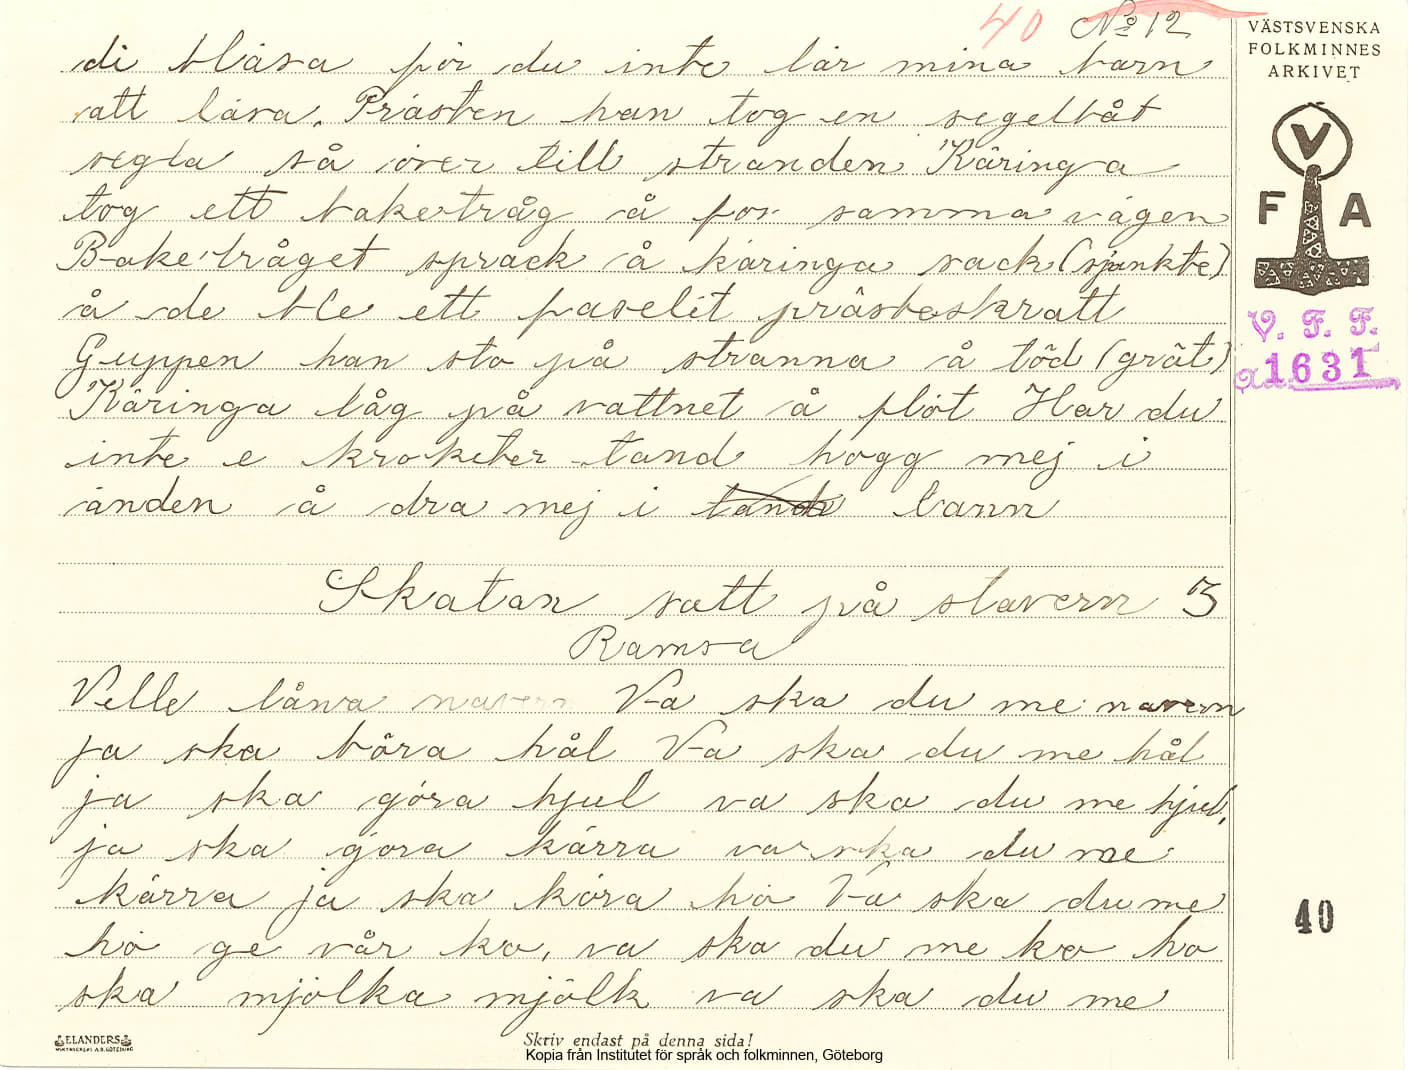 40 No 12
di blåsa för du inte lär mina barn
att läsa. Prästen han tog en segelbåt
segla så över till stranden Käringa
tog ett baketråg å for samma vägen
Baketråget sprack å käringa sack (sjunkte)
å de ble ett faselit prästeskratt
Guppen han sto på stranna å töd (grät)
Käringa låg på vattnet å flöt Har du
inte e kroketer tand hogg mej i
änden å dra mej i lann
Skatan satt på stavern 3
Ramsa
Velle låna navern Va ska du me navern
ja ska båra hål Va ska du me hål
ja ska göra hjul va ska du me hjul,
ja ska göra kärra va ska du me
kärra ja ska köra hö Va ska du me
hö ge vår ko, va ska du me ko ho
ska mjölka mjölk va ska du me
VÄSTSVENSKA
FOLKMINNES
ARKIVET
V
F A
V. F. F.
1631
40
ELANDERS
Skriv endast på denna sida!
Kopia från Institutet för språk och folkminnen, Göteborg